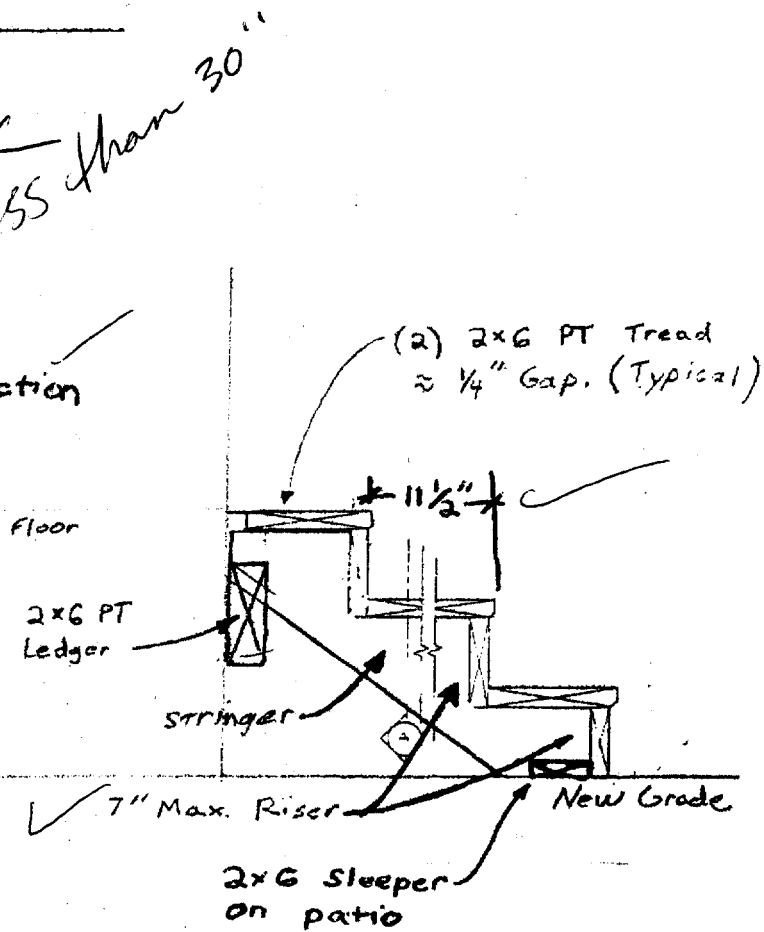 than 30"
(2) 2x6 PT Tread
≈ 1/4" Gap. (Typical)
11 1/2"
Floor
2x6 PT
Ledger
stringer
7" Max. Riser
New Grade
2x6 Sleeper
on patio